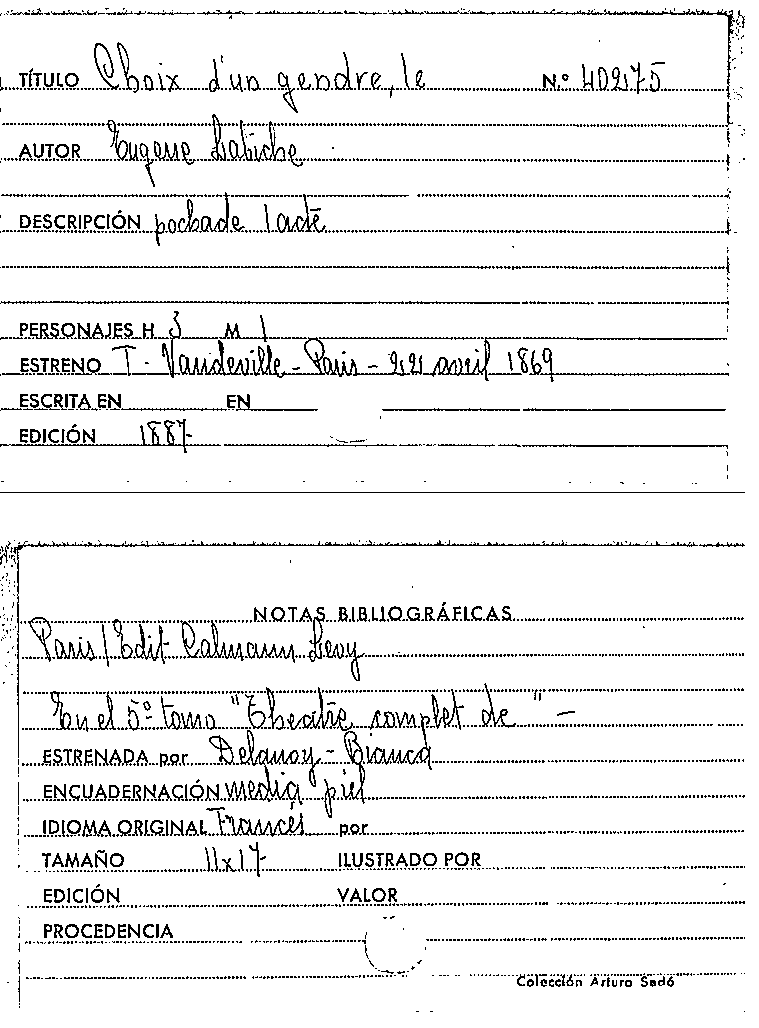 TÍTULO Choix d'un gendre, le N.º 40275
AUTOR Eugene Labiche
DESCRIPCIÓN pochade 1 acte
PERSONAJES H 3 M 1
ESTRENO T. Vaudeville - Paris - 22 avril 1869
ESCRITA EN EN
EDICIÓN 1887
NOTAS BIBLIOGRÁFICAS
Paris / Edit Calmann Levy
En el 5º tomo "Theatre complet de " -
ESTRENADA por Delanoy - Bianca
ENCUADERNACIÓN media piel
IDIOMA ORIGINAL Francés por
TAMAÑO 11x17 ILUSTRADO POR
EDICIÓN VALOR
PROCEDENCIA
Colección Arturo Sedó